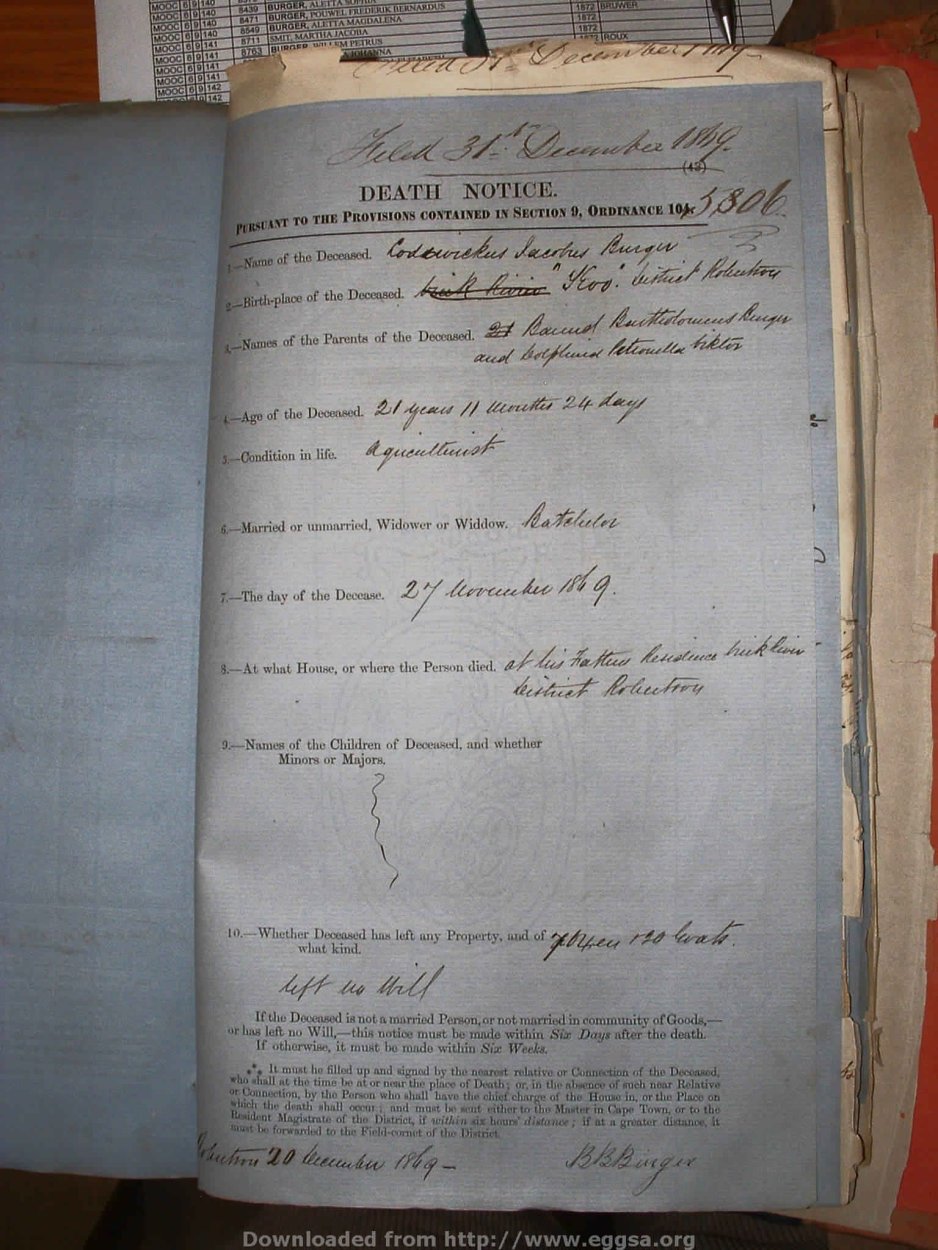 MOOC 6 9 140 8439 BURGER, ALETTA SOPHIA 1872 BRUWER
MOOC 6 9 140 8471 BURGER, POUWEL FREDERIK BERNARDUS
MOOC 6 9 140 8549 BURGER, ALETTA MAGDALENA 1872
MOOC 6 9 141 8711 SMIT, MARTHA JACOBA 1872 ROUX
MOOC 6 9 141 8763 BURGER, WILLEM PETRUS
MOOC 6 9 141
MOOC 6 9 142
Filed 31st December 1869
Filed 31st December 1869.
(43)
DEATH NOTICE.
PURSUANT TO THE PROVISIONS CONTAINED IN SECTION 9, ORDINANCE 104. 5806.
1.—Name of the Deceased. Jacobus Burger
2.—Birth-place of the Deceased. "Koo". District Robertson
3.—Names of the Parents of the Deceased. 21 Barend Bartholomeus Burger
and Petronella
4.—Age of the Deceased. 21 years 11 Months 24 days
5.—Condition in life. Agriculturist
6.—Married or unmarried, Widower or Widdow. Batchelor
7.—The day of the Decease. 27 November 1869.
8.—At what House, or where the Person died. at his Fathers Residence River
District Robertson
9.—Names of the Children of Deceased, and whether
Minors or Majors.
10.—Whether Deceased has left any Property, and of 7 Oxen 120 Goats.
what kind.
left no Will
If the Deceased is not a married Person, or not married in community of Goods,—
or has left no Will,—this notice must be made within Six Days after the death.
If otherwise, it must be made within Six Weeks.
⁂ It must he filled up and signed by the nearest relative or Connection of the Deceased,
who shall at the time be at or near the place of Death; or, in the absence of such near Relative
or Connection, by the Person who shall have the chief charge of the House in, or the Place on
which the death shall occur; and must be sent either to the Master in Cape Town, or to the
Resident Magistrate of the District, if within six hours' distance; if at a greater distance, it
must be forwarded to the Field-cornet of the District.
Robertson 20 December 1869— BBBurger
Downloaded from http://www.eggsa.org